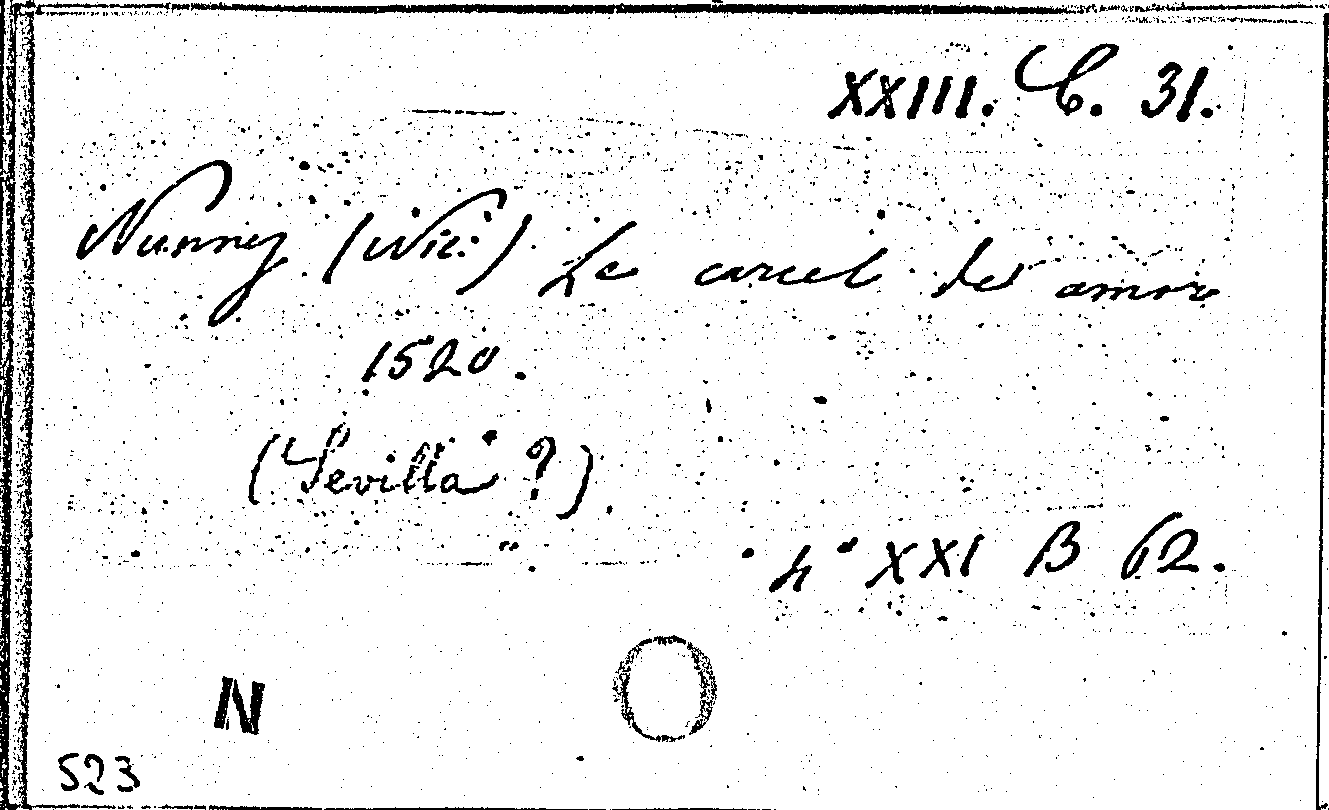 XXIII. C. 31.
Nunnez (Nic.) Le carcel de amore
1520.
(Sevilla ?).
4° XXI B 62.
N
523